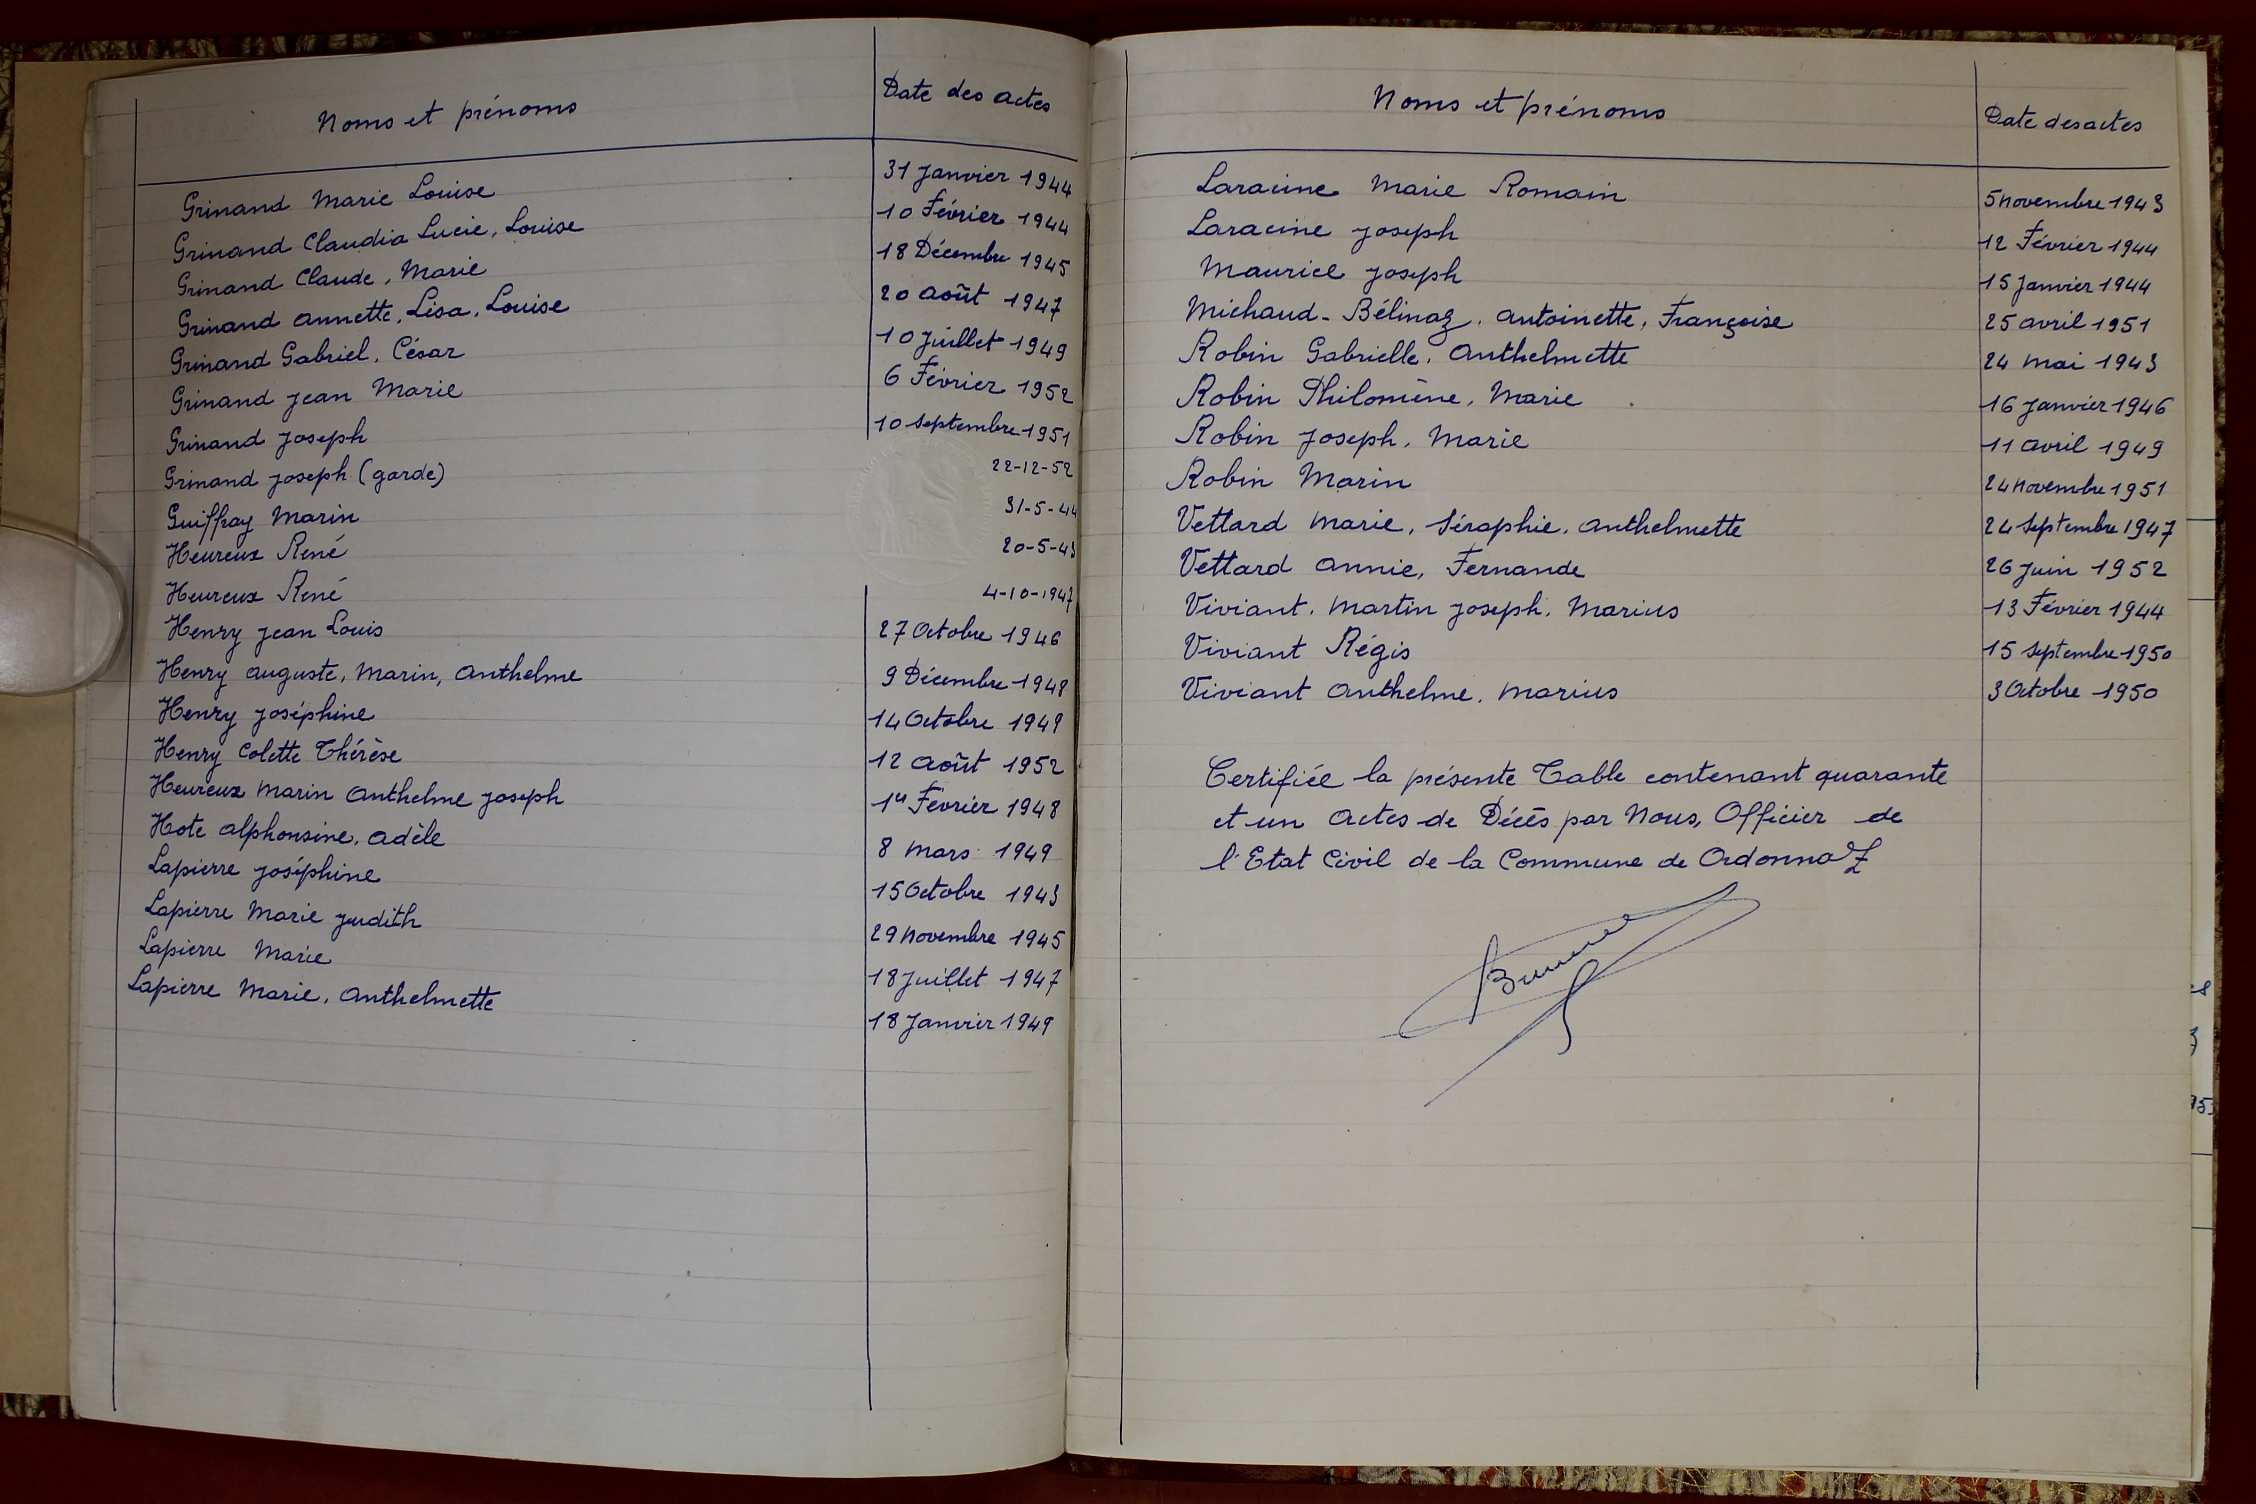 Noms et prénoms Date des actes
Grinand Marie Louise 31 Janvier 1944
Grinand Claudia Lucie, Louise 10 Février 1944
Grinand Claude, Marie 18 Décembre 1945
Grinand Annette, Lisa, Louise 20 Août 1947
Grinand Gabriel, César 10 Juillet 1949
Grinand Jean Marie 6 Février 1952
Grinand Joseph 10 Septembre 1951
Grinand Joseph (garde) 22-12-52
Guiffray Marin 31-5-44
Heureux René 20-5-43
Heureux René 4-10-1947
Henry Jean Louis 27 Octobre 1946
Henry Auguste, Marin, Anthelme 9 Décembre 1948
Henry Joséphine 14 Octobre 1949
Henry Colette Thérèse 12 Août 1952
Heureux Marin Anthelme Joseph 1er Février 1948
Hote Alphonsine, Adèle 8 Mars 1949
Lapierre Joséphine 15 Octobre 1943
Lapierre Marie Judith 29 Novembre 1945
Lapierre Marie 18 Juillet 1947
Lapierre Marie, Anthelmette 18 Janvier 1949
Noms et prénoms Date des actes
Laracine Marie Romain 5 Novembre 1943
Laracine Joseph 12 Février 1944
Mauricel Joseph 15 Janvier 1944
Michaud-Bélinaz, Antoinette, Françoise 25 Avril 1951
Robin Gabrielle, Anthelmette 24 Mai 1943
Robin Philomène, Marie 16 Janvier 1946
Robin Joseph, Marie 11 Avril 1949
Robin Marin 24 Novembre 1951
Vettard Marie, Séraphie, Anthelmette 24 Septembre 1947
Vettard Annie, Fernande 26 Juin 1952
Viviant, Martin Joseph, Marius 13 Février 1944
Viviant Régis 15 Septembre 1950
Viviant Anthelme, Marius 3 Octobre 1950
Certifiée la présente Table contenant quarante
et un Actes de Décès par Nous, Officier de
l'Etat Civil de la Commune de Ordonnaz